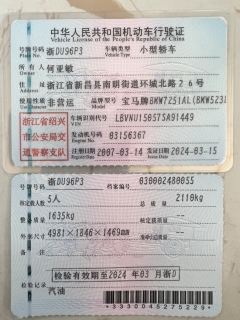 中华人民共和国机动车行驶证
Vehicle License of the People's Republic of China
号牌号码 浙DU96P3 车辆类型 小型轿车
Plate No. Vehicle Type
所有人 何亚敏
Owner
住址 浙江省新昌县南明街道环城北路26号
Address
使用性质 非营运 品牌型号 宝马牌BMW7251AL(BMW523L
浙江省绍兴
市公安局交
通警察支队
车辆识别代号 LBVNU15057SA91449
发动机号码 03156367
注册日期 2007-03-14 发证日期 2024-03-15
号牌号码 浙DU96P3 档案编号 030002480055
核定载人数 5人 总质量 2110kg
整备质量 1635kg 核定载质量 --
外廓尺寸 4981×1846×1469mm --
备注
检验有效期至2024年03月浙D
检验记录
汽油
*3330045275922*